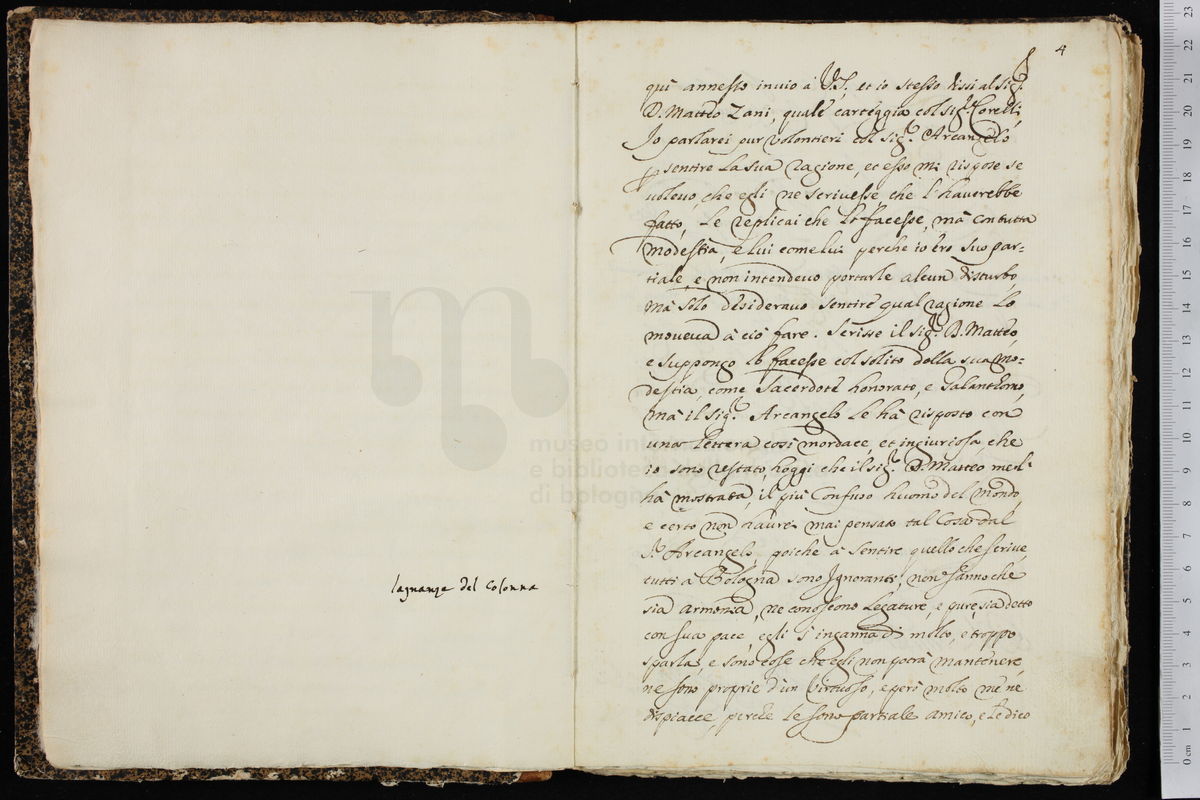 lagnanze del Colonna
4
qui annesso invio à V.S. et io stesso dissi al Sig.r
D. Matteo Zani, quale carteggia col Sig.r Corelli,
Io parlarei pur volontieri col Sig.r Arcangelo
sentire la sua ragione, et esso mi rispose se
volevo, che egli ne scrivesse che l'haverebbe
fatto, le replicai che lo facesse, mà con tutta
modestia, e lui come lui perche io ero suo par=
tiale, e non intendevo portarle alcun disturbo,
mà solo desideravo sentire qual ragione lo
moveva à ciò fare. Scrisse il Sig.r D. Matteo,
e suppongo lo facesse col solito della sua mo=
destia, come Sacerdote honorato, e Galanthomo,
mà il Sig.r Arcangelo le hà risposto con
una lettera così mordace et ingiuriosa che
io sono restato, hoggi che il Sig.r D. Matteo me l'
hà mostrata, il più confuso huomo del mondo,
e certo non haurei mai pensato tal cosa dal
S.r Arcangelo, poiche à sentire quello che scrive,
tutti à Bologna sono Ignoranti, non sanno che
sia armonia, ne conoscono legature, e pure, sia detto
con sua pace, egli s'inganna di molto, e troppo
sparla, e sono cose che egli non potrà mantenere,
ne sono proprie d'un Virtuoso, e però molto me ne
dispiacce, perche le sono partiale amico, e le dico
museo in
e bibliote
di bologna